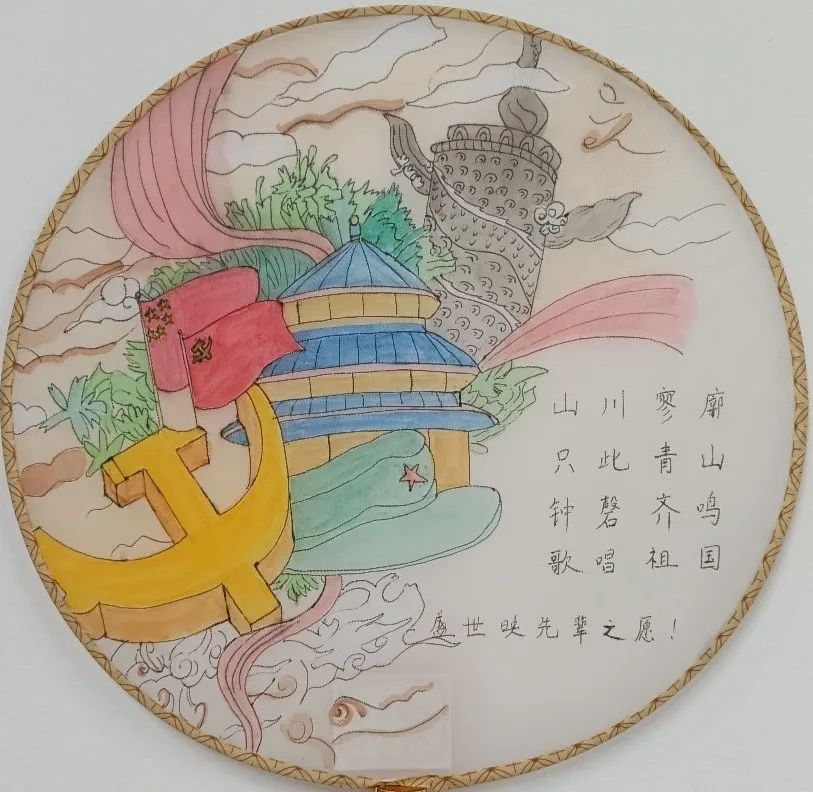 山川寥廓
只此青山
钟磬齐鸣
歌唱祖国
盛世映先辈之愿！